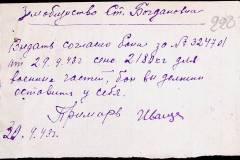 Земобщество Ст. Богдановка
200
Видать согласно бона за № 324701
от 29.9.43г сено 2180 кг для
военних частей, бон ви должни
оставить у себя.
Примарь Иваще
29.9.43г.